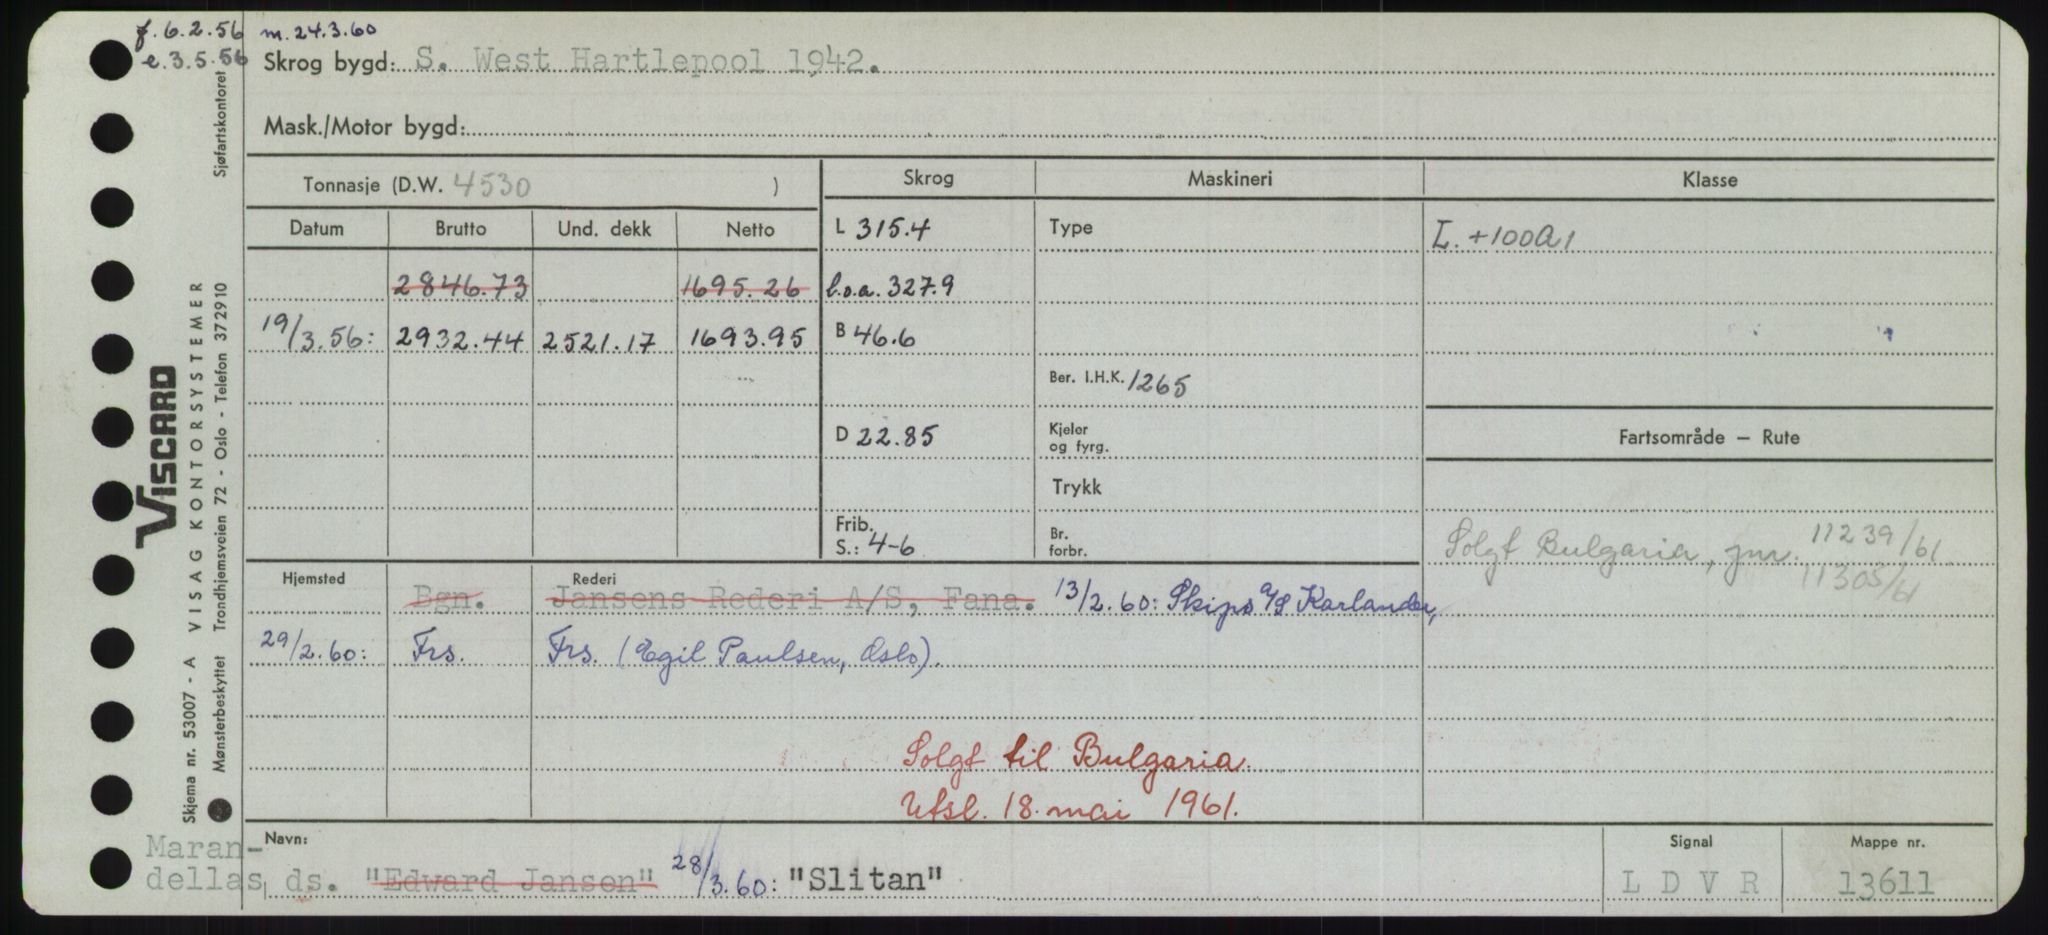 f. 6.2.56 m. 24.3.60
e. 3.5.56
Skrog bygd: S. West Hartlepool 1942.
Mask./Motor bygd:
Tonnasje (D.W. 4530 )
Skrog
Maskineri
Klasse
Datum
Brutto
Und. dekk
Netto
L 315.4
Type
L. +100A1
2846.73
1695.26
l.o.a. 327.9
19/3.56:
2932.44
2521.17
1693.95
B 46.6
Ber. I.H.K. 1265
D 22.85
Kjeler
og fyrg.
Fartsområde — Rute
Trykk
Frib.
S.: 4-6
Br.
forbr.
Solgt Bulgaria, jnr. 11239/61
11305/61
Hjemsted
Rederi
Bgn.
Jansens Rederi A/S, Fana.
13/2.60: Skips A/S Karlander,
29/2.60:
Frs.
Frs. (Egil Paulsen, Oslo).
Solgt til Bulgaria.
Utsl. 18. mai 1961.
Navn:
Signal
Mappe nr.
Maran-
dellas ds. "Edward Jansen" 28/3.60: "Slitan"
LDVR
13611
VISCARD
VISAG KONTORSYSTEMER
Skjema nr. 53007 - A
Trondhjemsveien 72 - Oslo - Telefon 372910
Mønsterbeskyttet
Sjøfartskontoret